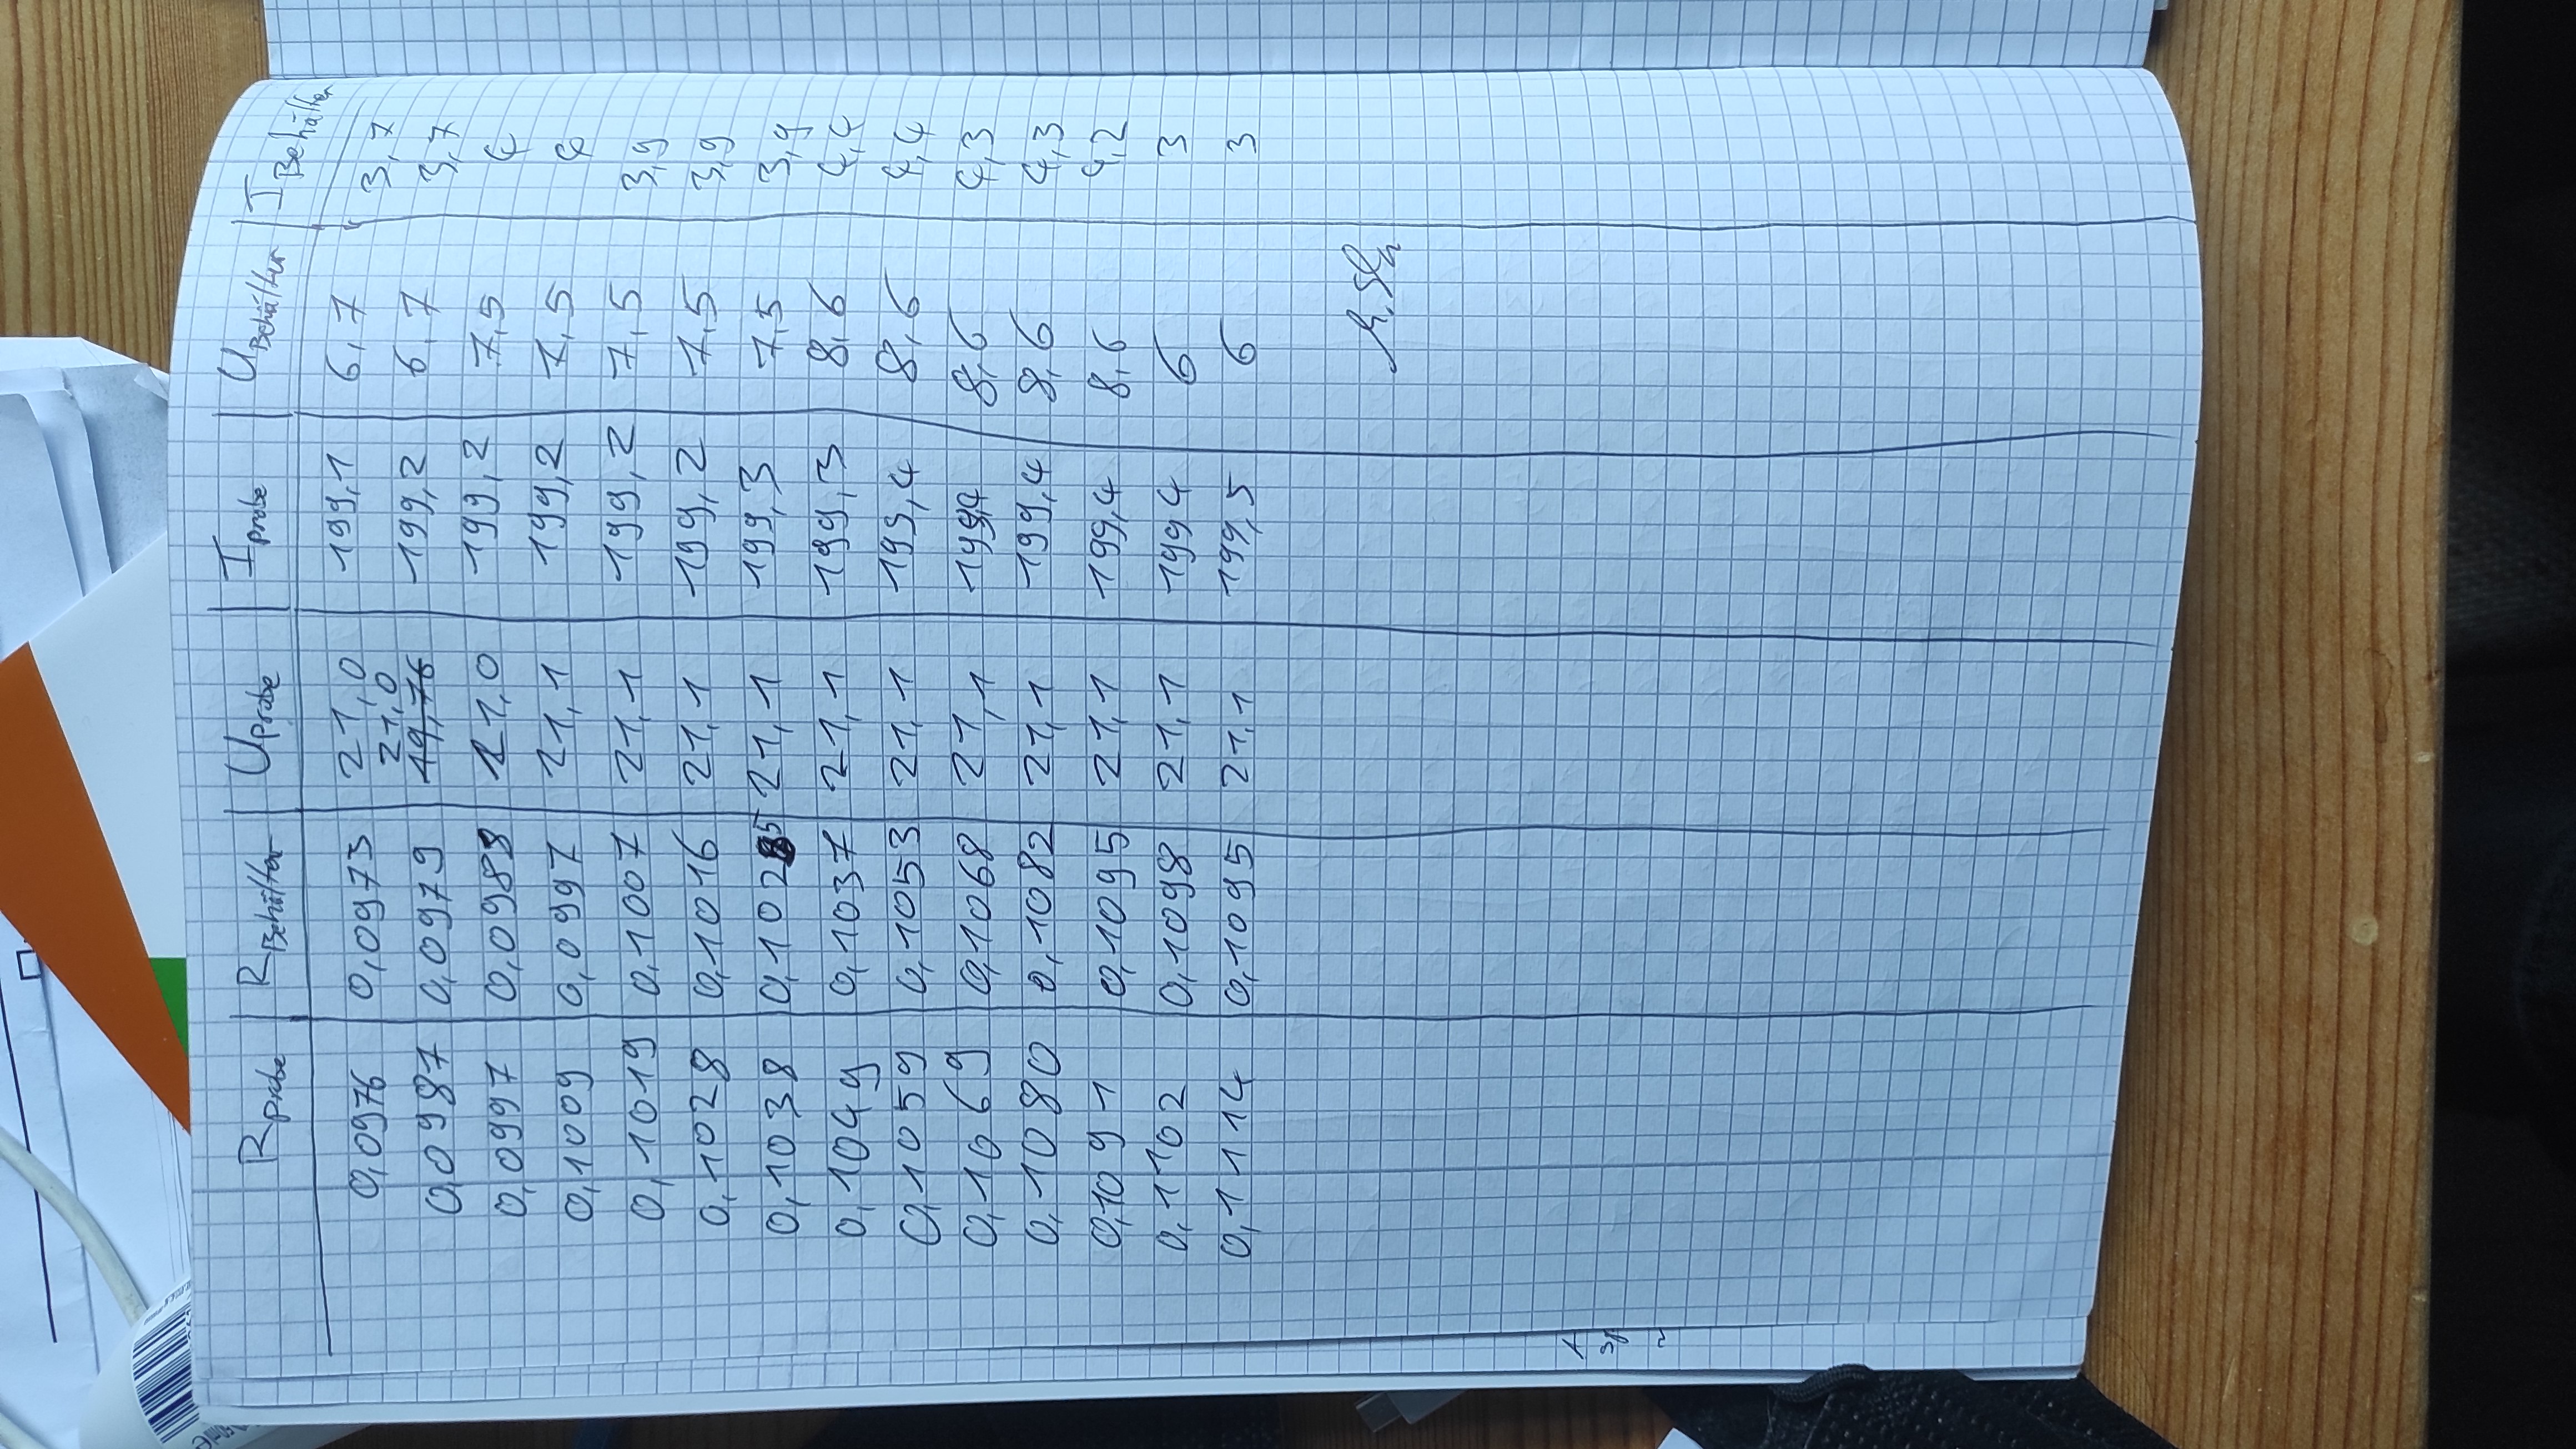 R Probe R Behälter U Probe I Probe U Behälter I Behälter
0,0976 0,0973 21,0 199,1 6,7 3,7
21,0
0,0987 0,0979 19,76 199,2 6,7 3,7
0,0997 0,0988 21,0 199,2 7,5 4
0,1009 0,0997 21,1 199,2 7,5 4
0,1019 0,1007 21,1 199,2 7,5 3,9
0,1028 0,1016 21,1 199,2 7,5 3,9
0,1038 0,1025 21,1 199,3 7,5 3,9
0,1049 0,1037 21,1 199,3 8,6 4,4
0,1059 0,1053 21,1 199,4 8,6 4,4
0,1069 0,1068 21,1 199,4 8,6 4,3
0,1080 0,1082 21,1 199,4 8,6 4,3
0,1091 0,1095 21,1 199,4 8,6 4,2
0,1102 0,1098 21,1 199,4 6 3
0,1114 0,1095 21,1 199,5 6 3